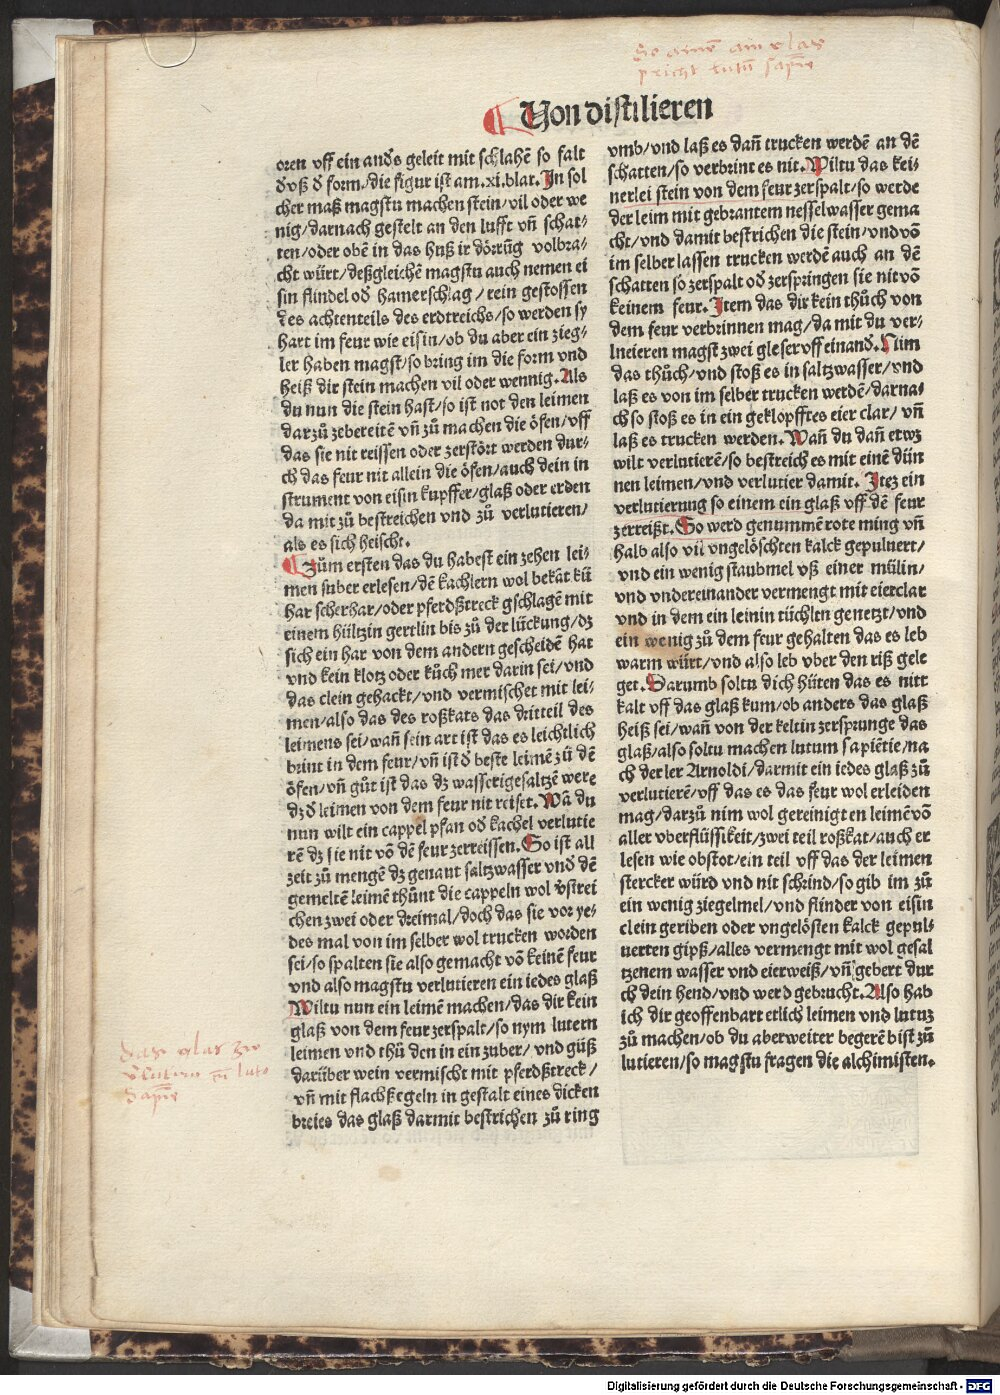 So ainem ain glas
pricht lutum sapie
Von distilieren
oren vff ein anđs geleit mit schlahē so falt
đvß đ form/die figur ist am.xi.blat.In sol
cher maß magstu machen stein/vil oder we
nig/darnach gestelt an den lufft vñ schat⸗
ten/oder obē in das huß ir dörrūg volbra⸗
cht würt/deßgleichē magstu auch nemen ei
sin flindel ođ hamerschlag/rein gestossen
des achtenteils des erdtreichs/so werden sy
hart im feur wie eisin/ob du aber ein zieg⸗
ler haben magst/so bring im die form vnd
heiß dir stein machen vil oder wennig.Als
du nun die stein hast/so ist not den leimen
darzů zebereitē vñ zů machen die öfen/vff
das sie nit reissen oder zerstört werden dur⸗
ch das feur nit allein die öfen/auch dein in
strument von eisin kupffer/glaß oder erden
da mit zů bestreichen vnd zů verlutieren/
als es sich heischt.
Zům ersten das du habest ein zehen lei⸗
men suber erlesen/dē kachlern wol bekāt kü
har scherhar/oder pferdßtreck gschlagē mit
einem hültzin gertlin bis zů der lückung/dz
sich ein har von dem andern gescheidē hat
vnd kein klotz oder kůch mer darin sei/vnd
das clein gehackt/vnd vermischet mit lei⸗
men/also das des roßkats das dritteil des
leimens sei/wañ sein art ist das es leichtlich
brint in dem feur/vñ ist đ beste leimē zů dē
öfen/vñ gůt ist das dz wasser igesaltzē were
dz đ leimen von dem feur nit reiset.Wā du
nun wilt ein cappel pfan ođ kachel verlutie
rē dz sie nit vō dē feur zerreissen.So ist all
zeit zů mengē dz genant saltzwasser vnđ dē
gemeltē leimē thůnt die cappeln wol v̄strei
chen zwei oder dreimal/doch das sie vor ye⸗
des mal von im selber wol trucken worden
sei/so spalten sie also gemacht vō keinē feur
vnd also magstu verlutieren ein iedes glaß
Wiltu nun ein leimē machen/das dir kein
glaß von dem feur zerspalt/so nym lutern
leimen vnd thů den in ein zuber/vnd güß
darüber wein vermischt mit pferdßtreck/
vñ mit flachßegeln in gestalt eines dicken
breies das glaß darmit bestrichen zů ring
vmb/vnd laß es dañ trucken werdē an dē
schatten/so verbrint es nit.Wiltu das kei⸗
nerlei stein von dem feur zerspalt/so werde
der leim mit gebrantem nesselwasser gema
cht/vnd damit bestrichen die stein/vnd vō
im selber lassen trucken werdē auch an dē
schatten so zerspalt ođ zerspringen sie nit vō
keinem feur.Item das dir kein thůch von
dem feur verbrinnen mag/da mit du ver⸗
lneieren magst zwei gleser vff einanđ.Nim
das thůch/vnd stoß es in saltzwasser/vnd
laß es von im selber trucken werdē/darna⸗
ch so stoß es in ein geklopfftes eier clar/vñ
laß es trucken werden.Wañ du dañ etwz
wilt verlutierē/so bestreich es mit einē dün
nen leimen/vnd verlutier damit.Itez ein
verlutierung so einem ein glaß vff dē feur
zerreißt.So werd genummē rote ming vñ
halb also vil vngelöschten kalck gepuluert/
vnd ein wenig staubmel vß einer mülin/
vnd vndereinander vermengt mit eierclar
vnd in dem ein leinin tüchltn genetzt/vnd
ein wenig zů dem feur gehalten das es leb
warm würt/vnd also leb vber den riß gele
get.Darumb soltu dich hüten das es nitt
kalt vff das glaß kum/ob anders das glaß
heiß sei/wañ von der keltin zersprunge das
glaß/also soltu machen lutum sapiētie/na
ch der ler Arnoldi/darmit ein iedes glaß zů
verlutierē/vff das es das feur wol erleiden
mag/darzů nim wol gereinigten leimē vō
aller vberflüssikeit/zwei teil roßkat/auch er
lesen wie obstot/ein teil vff das der leimen
stercker würd vnd nit schrind/so gib im zů
ein wenig ziegelmel/vnd flinder von eisin
clein geriben oder vngelösten kalck gepul⸗
uerten gipß/alles vermengt mit wol gesal
tzenem wasser vnd eierweiß/vñ gebert dur
ch dein hend/vnd werd gebrucht.Also hab
ich dir geoffenbart etlich leimen vnd lutuz
zů machen/ob du aber weiter begerē bist zů
lutieren/so magstu fragen die alchimisten.
das glas zu
luto
Sapie
Digitalisierung gefördert durch die Deutsche Forschungsgemeinschaft - DFG